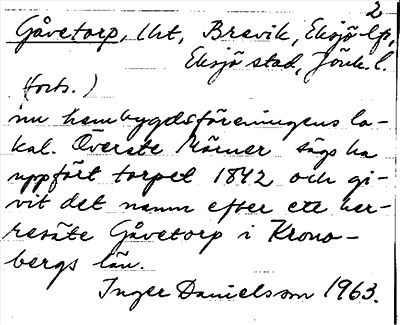 2
Gåvetorp, lht, Bravik, Eksjö lfs,
Eksjö stad, Jönk. l.
(forts.)
nu hembygdsföreningens lo-
kal. Överste Mörner sägs ha
uppfört torpet 1842 och gi-
vit det namn efter ett her-
resäte Gåvetorp i Krono-
bergs län.
Inger Danielsson 1963.